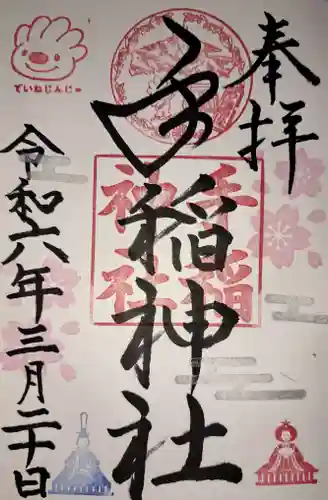 奉拝
手稲神社
手稲
神社
ていねじんじゃ
令和六年三月二十日